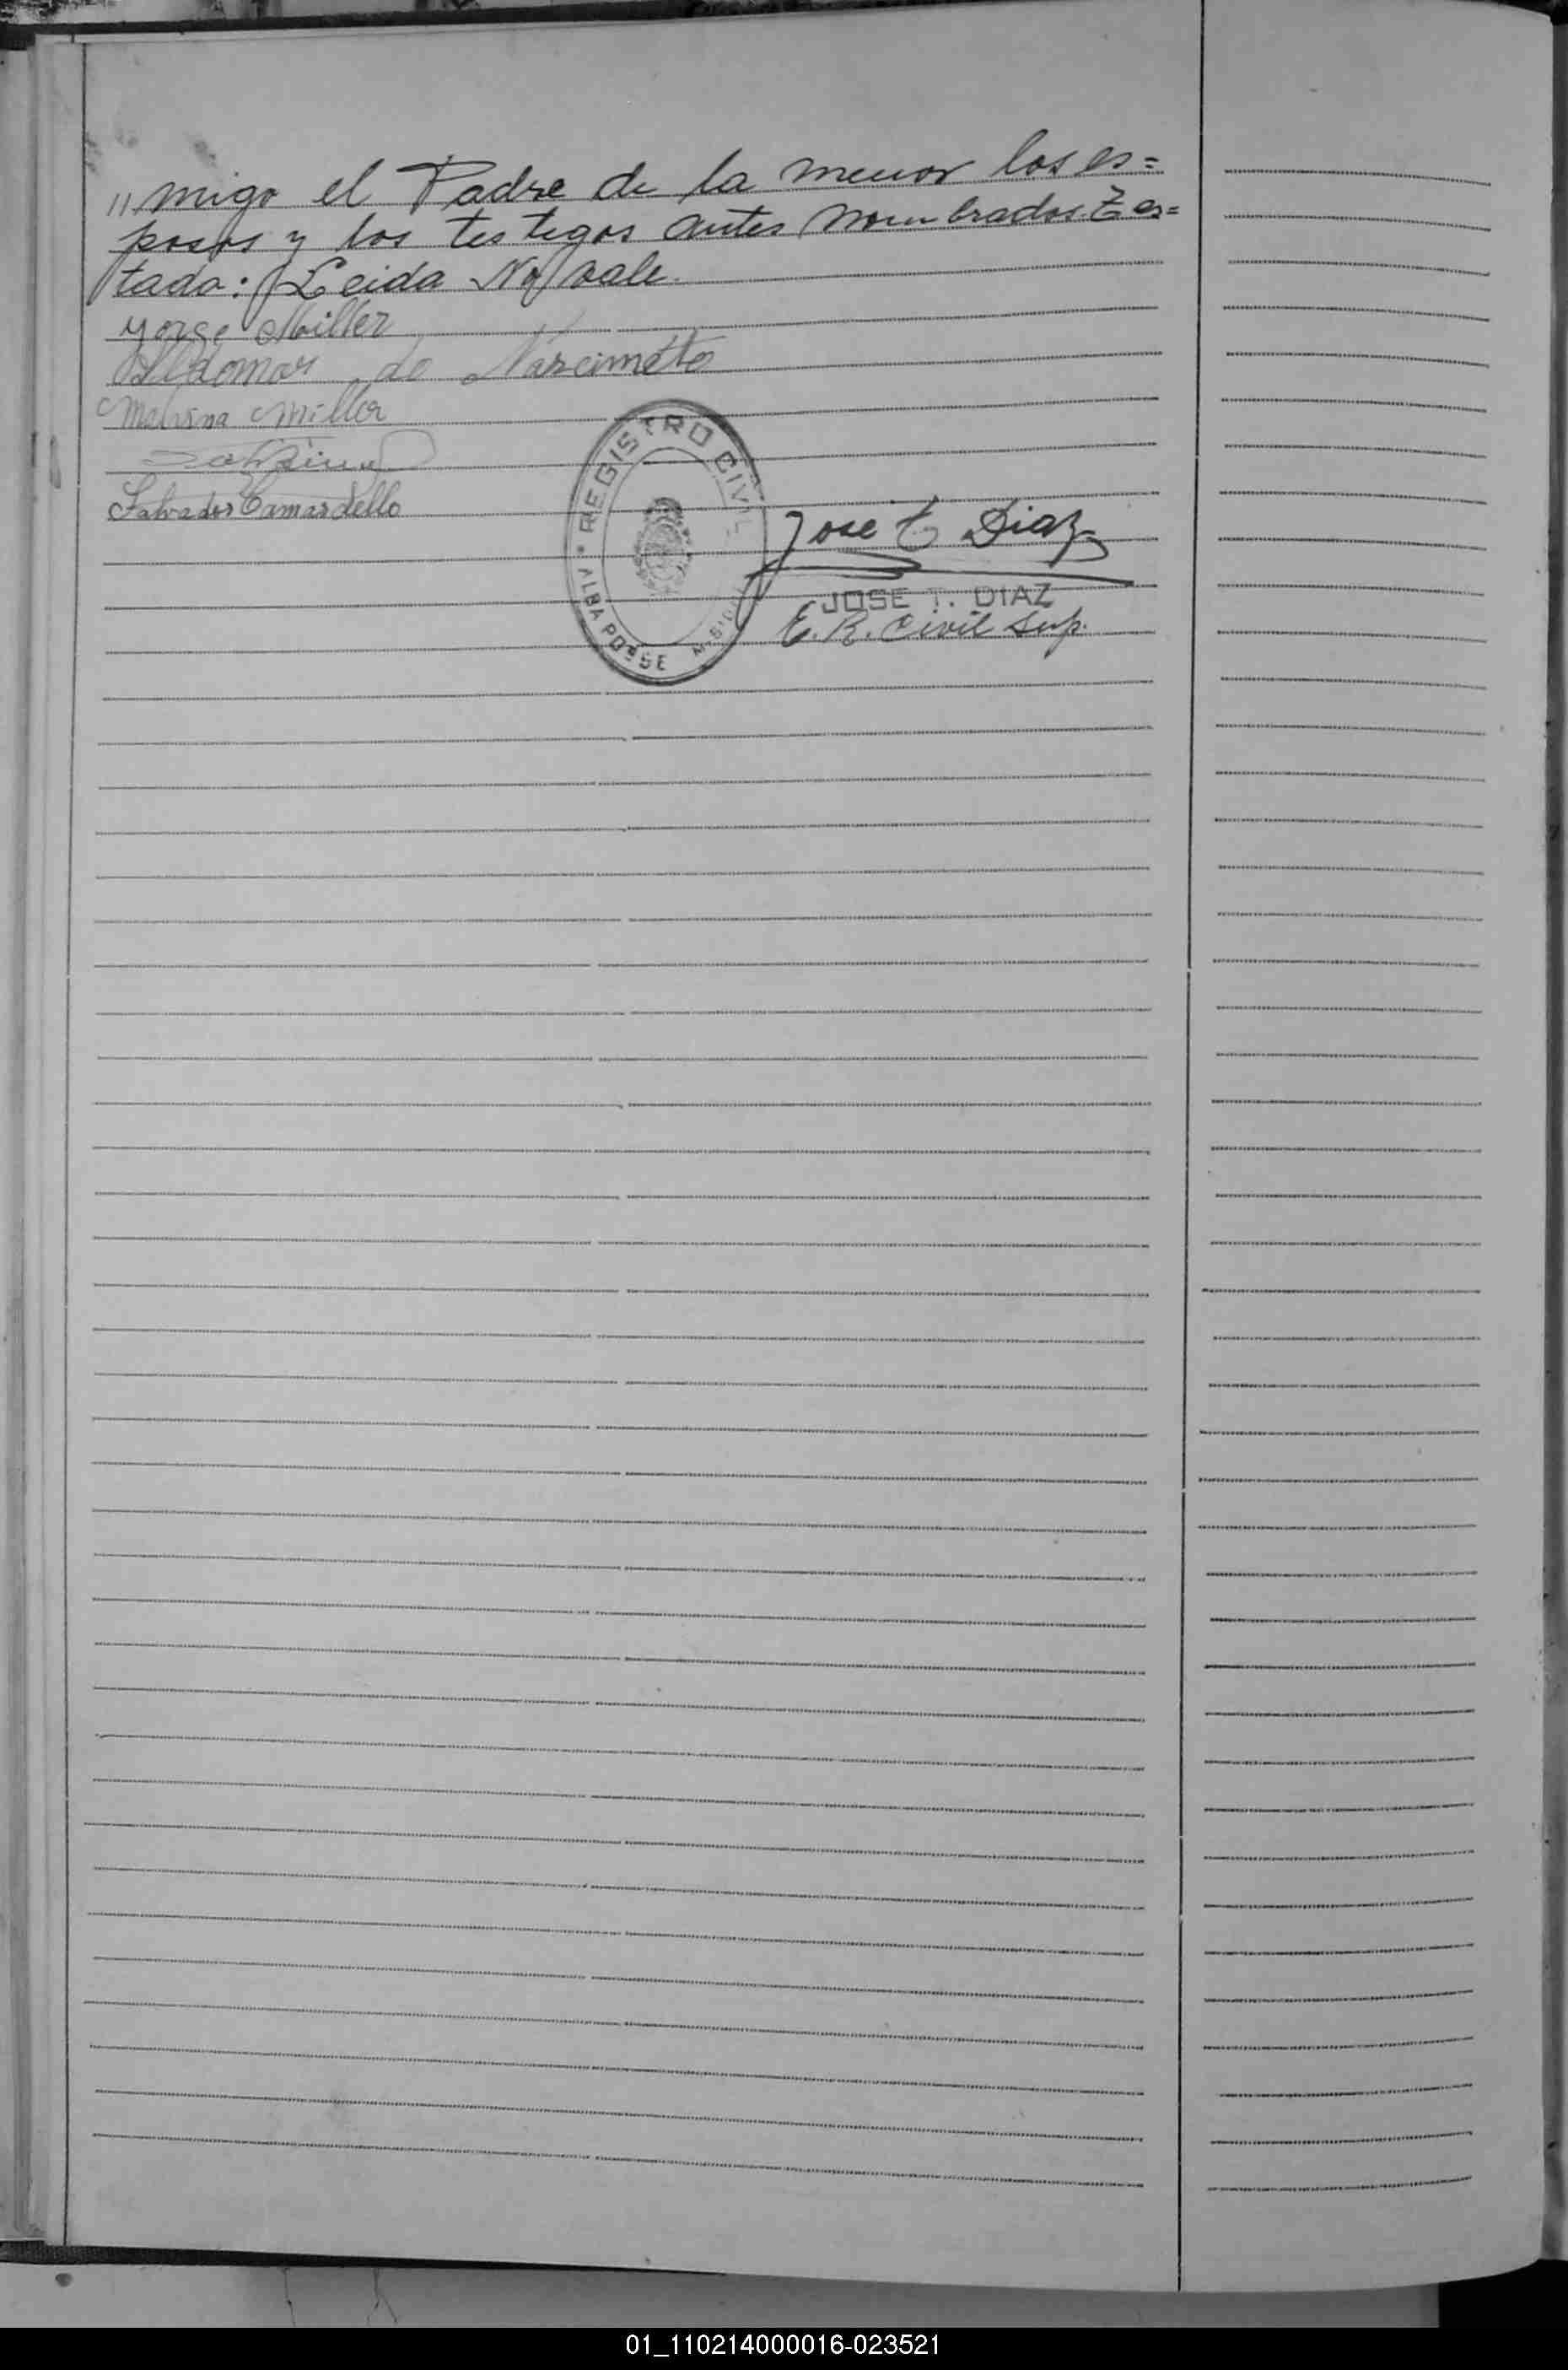 "migo el Padre de la menor los es=
posos y los testigos antes nombrados. Tes=
tado: Leida No vale.
Jorge Miller
do Narcimeto
Miller
Salvador Camardello
REGISTRO CIVIL
ALBA POSSE MISIONES
Jose T Diaz
JOSE T. DIAZ
E. R. Civil Sup.
01_110214000016-023521